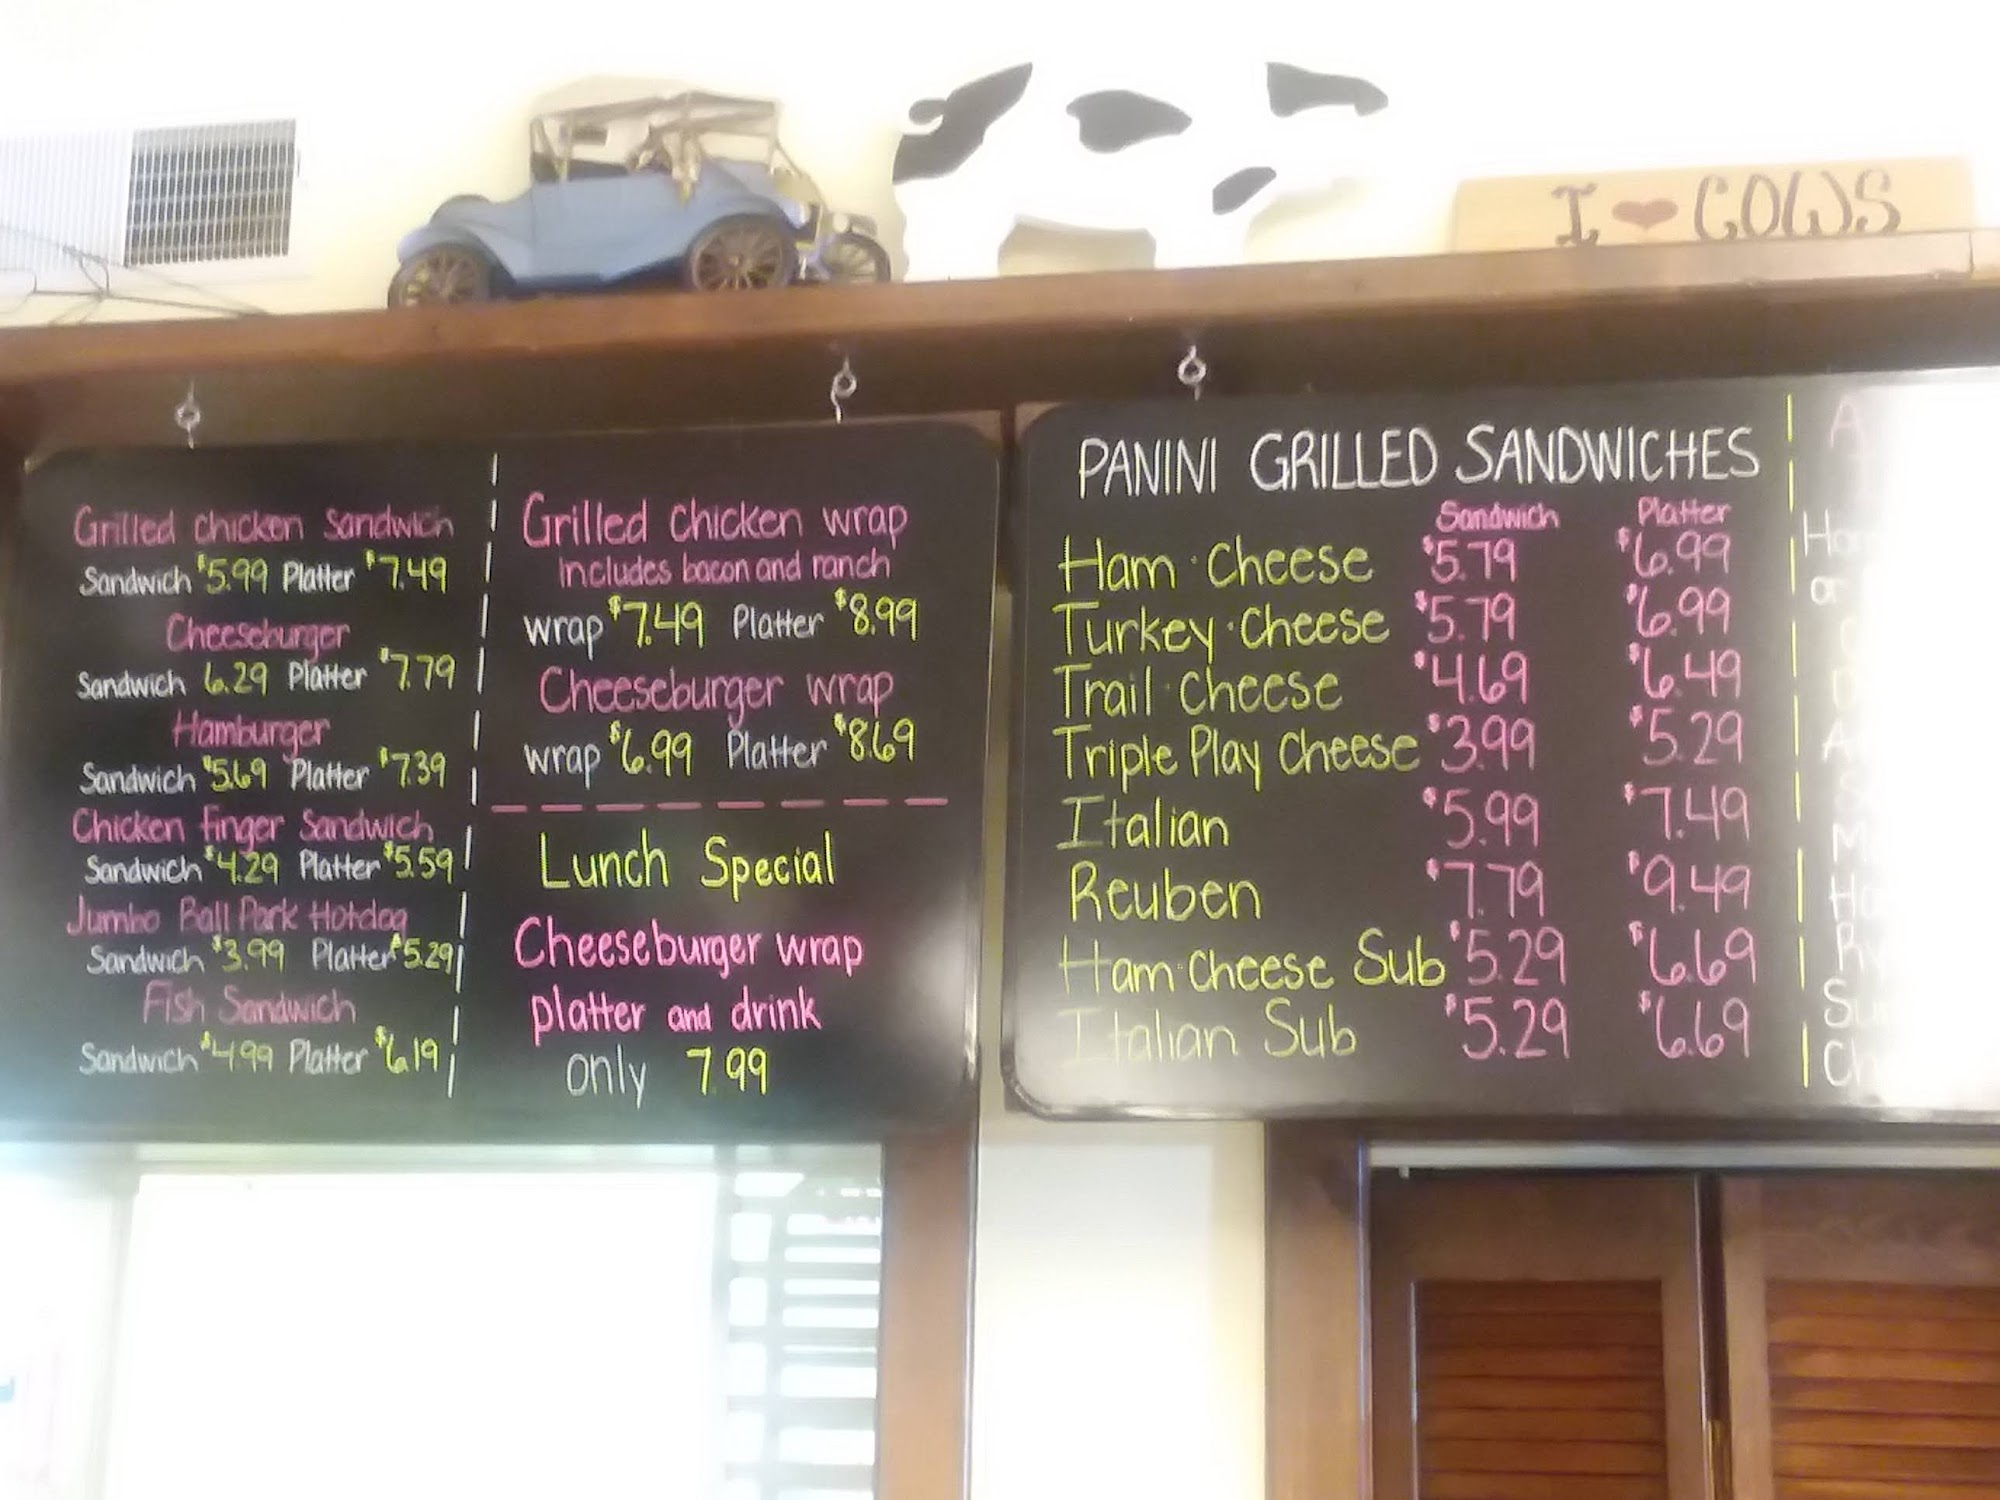 I ❤ COWS
Grilled chicken Sandwich
Sandwich $5.99 Platter $7.49
Cheeseburger
Sandwich 6.29 Platter $7.79
Hamburger
Sandwich $5.69 Platter $7.39
Chicken finger Sandwich
Sandwich $4.29 Platter $5.59
Jumbo Ball Park Hotdog
Sandwich $3.99 Platter $5.29
Fish Sandwich
Sandwich $4.99 Platter $6.19
Grilled chicken wrap
includes bacon and ranch
wrap $7.49 Platter $8.99
Cheeseburger wrap
wrap $6.99 Platter $8.69
Lunch Special
Cheeseburger wrap
platter and drink
only 7.99
PANINI GRILLED SANDWICHES
Sandwich Platter
Ham · Cheese $5.79 $6.99
Turkey · Cheese $5.79 $6.99
Trail · Cheese $4.69 $6.49
Triple Play Cheese $3.99 $5.29
Italian $5.99 $7.49
Reuben $7.79 $9.49
Ham · Cheese Sub $5.29 $6.69
Italian Sub $5.29 $6.69
or